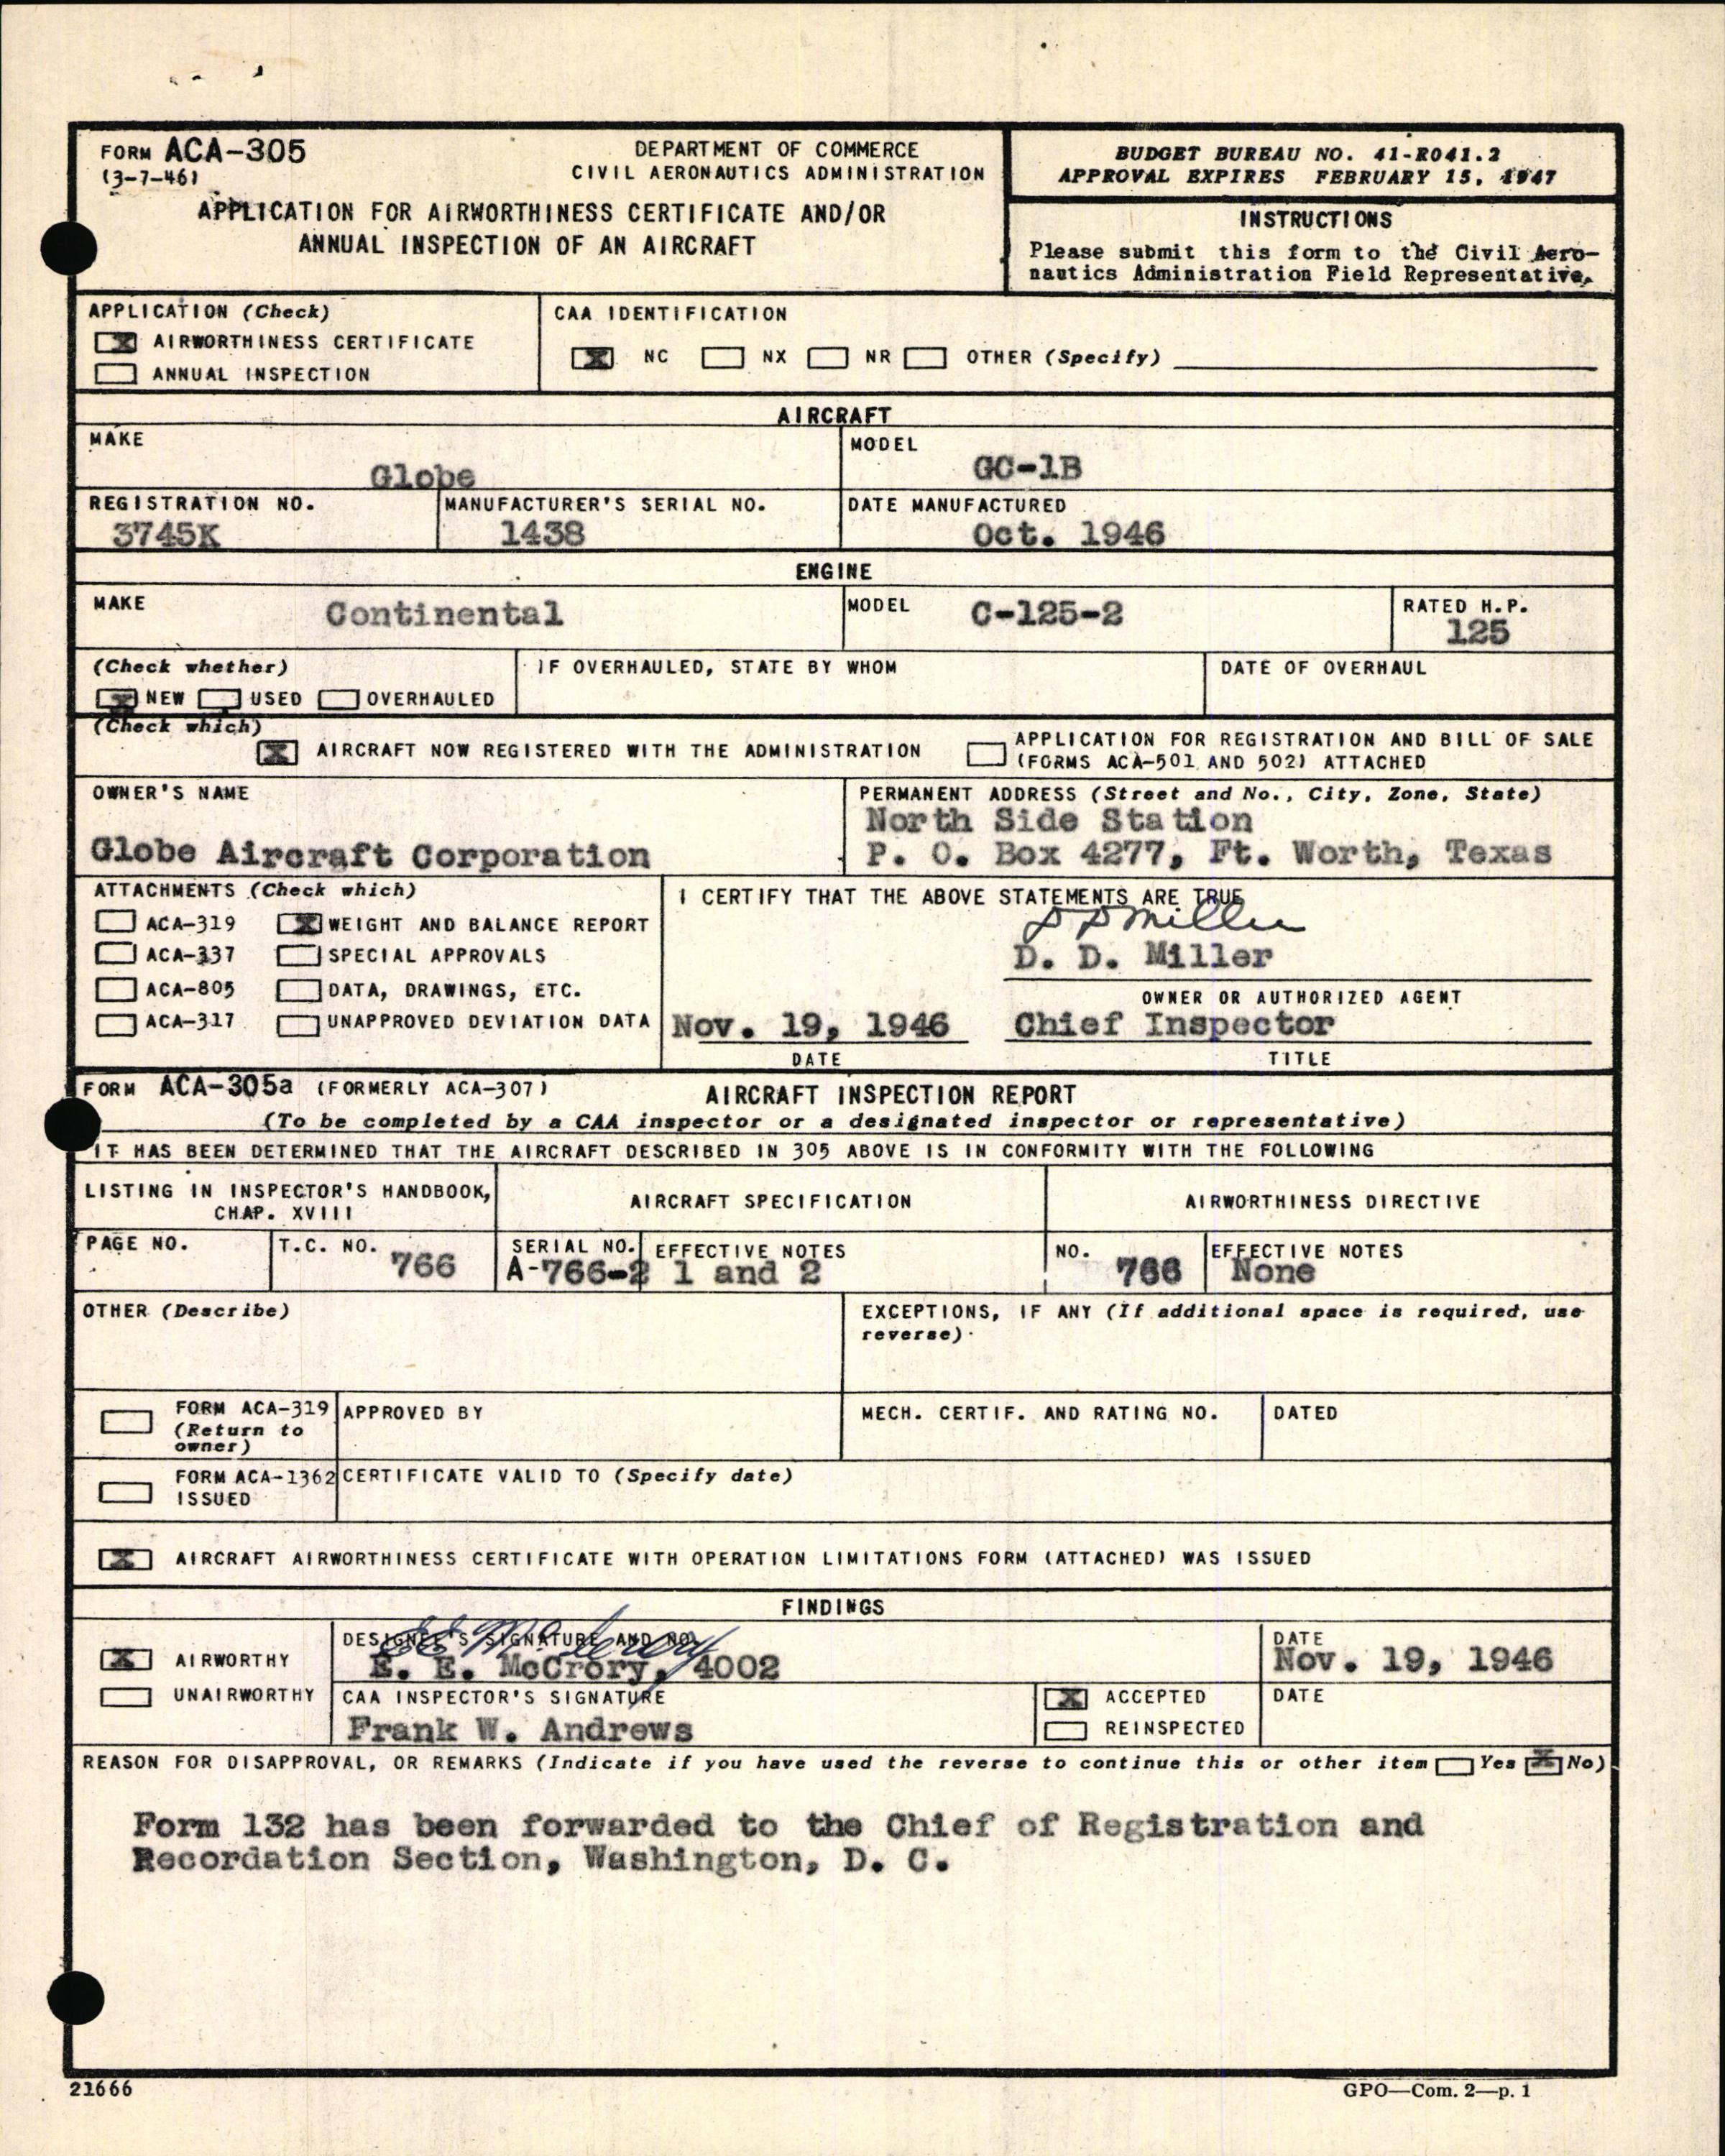 FORM ACA-305
(3-7-46)
DEPARTMENT OF COMMERCE
CIVIL AERONAUTICS ADMINISTRATION
APPLICATION FOR AIRWORTHINESS CERTIFICATE AND/OR
ANNUAL INSPECTION OF AN AIRCRAFT
BUDGET BUREAU NO. 41-R041.2
APPROVAL EXPIRES FEBRUARY 15, 1947
INSTRUCTIONS
Please submit this form to the Civil Aero-
nautics Administration Field Representative.
APPLICATION (Check)
X AIRWORTHINESS CERTIFICATE
ANNUAL INSPECTION
CAA IDENTIFICATION
X NC NX NR OTHER (Specify)
AIRCRAFT
MAKE
Globe
MODEL
GC-1B
REGISTRATION NO.
3745K
MANUFACTURER'S SERIAL NO.
1438
DATE MANUFACTURED
Oct. 1946
ENGINE
MAKE
Continental
MODEL
C-125-2
RATED H.P.
125
(Check whether)
X NEW USED OVERHAULED
IF OVERHAULED, STATE BY WHOM
DATE OF OVERHAUL
(Check which)
X AIRCRAFT NOW REGISTERED WITH THE ADMINISTRATION
APPLICATION FOR REGISTRATION AND BILL OF SALE
(FORMS ACA-501 AND 502) ATTACHED
OWNER'S NAME
Globe Aircraft Corporation
PERMANENT ADDRESS (Street and No., City, Zone, State)
North Side Station
P. O. Box 4277, Ft. Worth, Texas
ATTACHMENTS (Check which)
ACA-319 X WEIGHT AND BALANCE REPORT
ACA-337 SPECIAL APPROVALS
ACA-805 DATA, DRAWINGS, ETC.
ACA-317 UNAPPROVED DEVIATION DATA
I CERTIFY THAT THE ABOVE STATEMENTS ARE TRUE
D D Miller
D. D. Miller
OWNER OR AUTHORIZED AGENT
Nov. 19, 1946 Chief Inspector
DATE TITLE
FORM ACA-305a (FORMERLY ACA-307) AIRCRAFT INSPECTION REPORT
(To be completed by a CAA inspector or a designated inspector or representative)
IT HAS BEEN DETERMINED THAT THE AIRCRAFT DESCRIBED IN 305 ABOVE IS IN CONFORMITY WITH THE FOLLOWING
LISTING IN INSPECTOR'S HANDBOOK,
CHAP. XVIII
AIRCRAFT SPECIFICATION
AIRWORTHINESS DIRECTIVE
PAGE NO.
T.C. NO.
766
SERIAL NO.
A-766-2
EFFECTIVE NOTES
1 and 2
NO.
766
EFFECTIVE NOTES
None
OTHER (Describe)
EXCEPTIONS, IF ANY (If additional space is required, use
reverse)
FORM ACA-319
(Return to
owner)
APPROVED BY
MECH. CERTIF. AND RATING NO.
DATED
FORM ACA-1362
ISSUED
CERTIFICATE VALID TO (Specify date)
X AIRCRAFT AIRWORTHINESS CERTIFICATE WITH OPERATION LIMITATIONS FORM (ATTACHED) WAS ISSUED
FINDINGS
X AIRWORTHY
UNAIRWORTHY
DESIGNEE'S SIGNATURE AND NO.
E E McCrory
E. E. McCrory, 4002
DATE
Nov. 19, 1946
CAA INSPECTOR'S SIGNATURE
Frank W. Andrews
X ACCEPTED
REINSPECTED
DATE
REASON FOR DISAPPROVAL, OR REMARKS (Indicate if you have used the reverse to continue this or other item Yes X No)
Form 132 has been forwarded to the Chief of Registration and
Recordation Section, Washington, D. C.
21666
GPO—Com. 2—p. 1